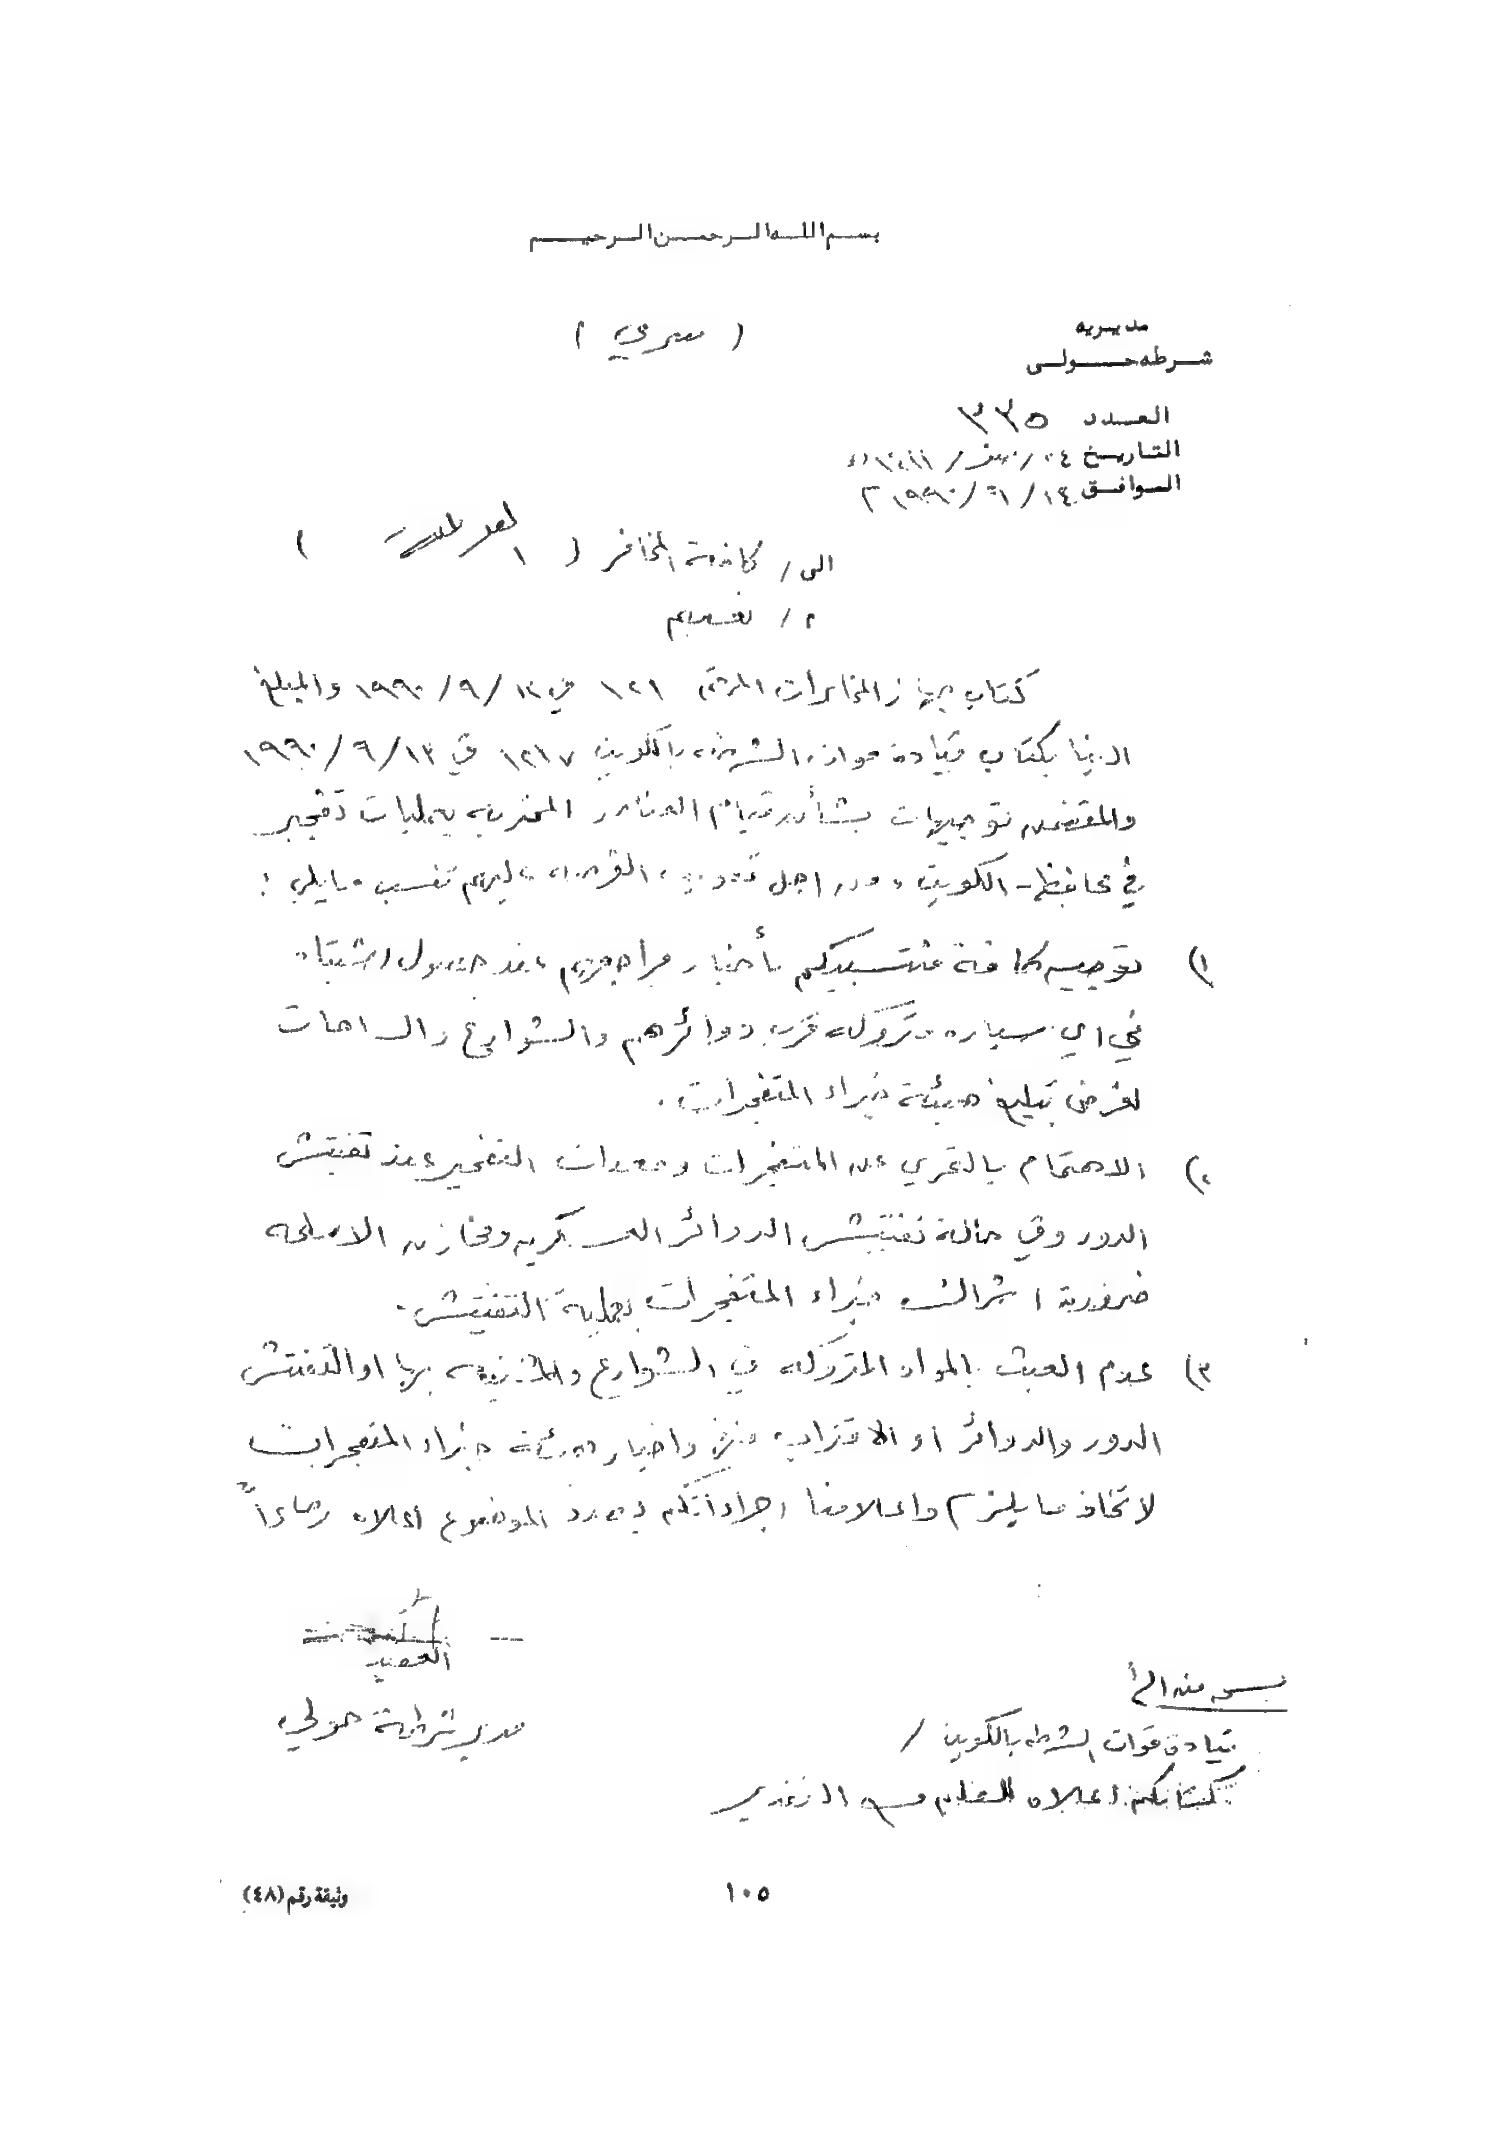 بسم الله الرحمن الرحيم
( سري )
مديريه
شرطه حولي
العدد ٣٢٥
التاريخ ٢٤ / صفر / ١٤١١
الموافق ١٤ / ٩ / ١٩٩٠ م
الى / كافة المخافر ( )
م / تعميم
كتاب جهاز المخابرات المرقم ١٢١ في ١٢ / ٩ / ١٩٩٠ والمبلغ
الينا بكتاب قيادة قوات الشرطه بالكويت ١٢١٧ في ١٣ / ٩ / ١٩٩٠
والمتضمن توجيهات بشأن قيام العناصر المخربه بعمليات تفجير
في محافظة الكويت ومن اجل تفويت الفرصه عليهم تنسب مايلي :
١) توجيه كافة منتسبيكم بأخبار مراجعهم عند حصول اشتباه
في اي سياره متروكه قرب دوائرهم والشوارع والساحات
لغرض تبليغ هيئة خبراء المتفجرات .
٢) الاهتمام بالتحري عن المتفجرات ومعدات التفجير عند تفتيش
الدور وفي حالة تفتيش الدوائر العسكريه ومخازن الاسلحه
ضرورة اشراك خبراء المتفجرات بعملية التفتيش .
٣) عدم العبث بالمواد المتروكه في الشوارع بها او التفتش
الدور والدوائر او الاقتراب منها واخبار هيئة خبراء المتفجرات
لاتخاذ ما يلزم واعلامنا اجراءاتكم بصدد الموضوع اعلاه رجاءاً
العقيد
مدير شرطة حولي
نسخه منه الى
قيادة قوات الشرطه بالكويت /
كتابكم اعلاه للعلم مع التقدير
١٠٥
وثيقة رقم (٤٨)